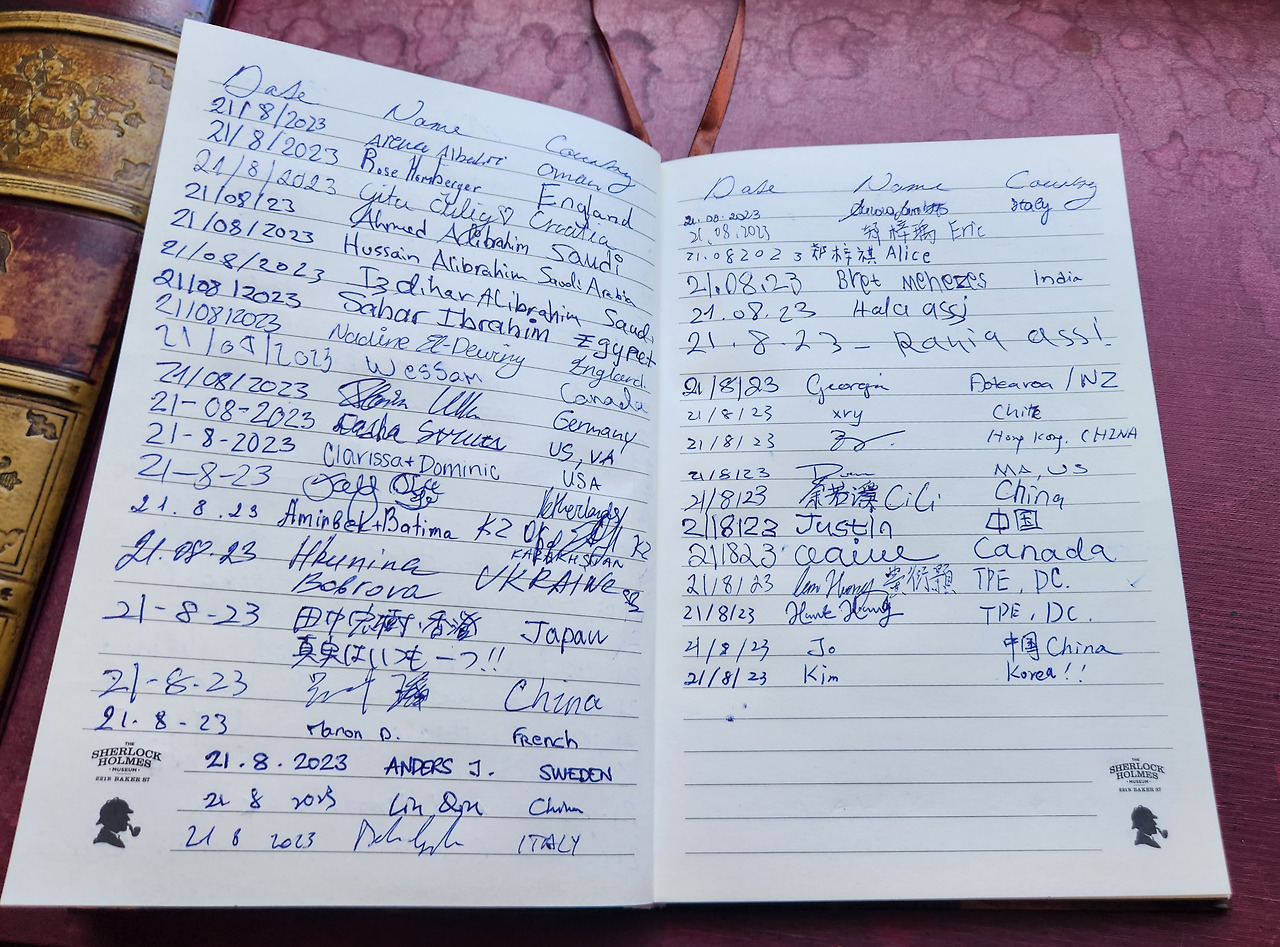 Date Name Country
21/8/2023 Oman
21/8/2023 Rose Hamberger England
21/8/2023 Croatia
21/08/23 Ahmed Alibrahim Saudi
21/08/2023 Hussain Alibrahim Saudi Arabia
21/08/2023 Izdihar ALibrahim Saudi
21/08/2023 Sahar Ibrahim Egypet
21/08/2023 Nadine El-Dewiny England
21/08/2023 Wessam Canada
21/08/2023 Germany
21-08-2023 US, VA
21-8-2023 Clarissa + Dominic USA
21-8-23 Netherlands
21.8.23 Aminbek + Batima KZ KZ
KAZAKHSTAN
21.08.23
Bobrova UKRAINE
21-8-23 田中宏樹 Japan
真実はいつも一つ!!
21-8-23 China
21.8-23 Manon D. French
21.8.2023 ANDERS J. SWEDEN
21 8 2023 China
21 8 2023 ITALY
THE
SHERLOCK
HOLMES
MUSEUM
221B BAKER ST
Date Name Country
21.08.2023 Italy
21.08.2023 Eric
21.082023 郑梓祺 Alice
21.08.23 Bret Menezes India
21.08.23 Hala assi
21.8.23 - Rania assi
21/8/23 Georgia Aotearoa/NZ
21/8/23 xry Chile
21/8/23 Hong Kong, CHINA
21/8/23 MA, US
21/8/23 CiCi China
21/8/23 Justin 中国
21/823 Canada
21/8/23 TPE, DC.
21/8/23 Hank Huang TPE, DC.
21/8/23 Jo 中国 China
21/8/23 Kim Korea!!
THE
SHERLOCK
HOLMES
MUSEUM
221B BAKER ST